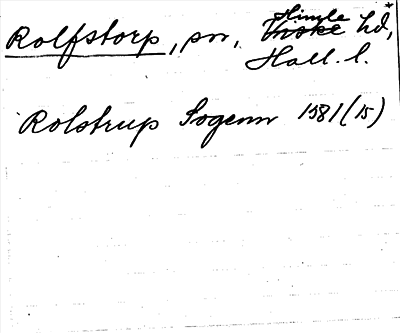 Rolfstorp, sn, Himle hd,
Hall. l.
Rolstrup Sogenn 1581 (15)